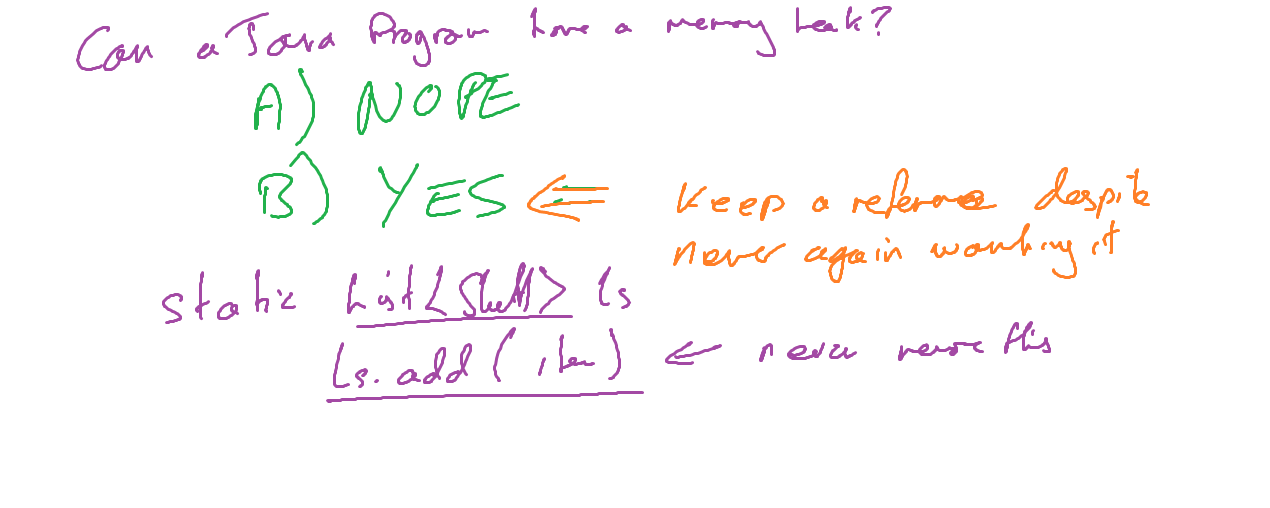 Can a Java Program have a memory leak?
A) NOPE
B) YES ⇐ Keep a reference despite
never again wanting it
static List<Stuff> ls
ls.add(item) ← never remove this